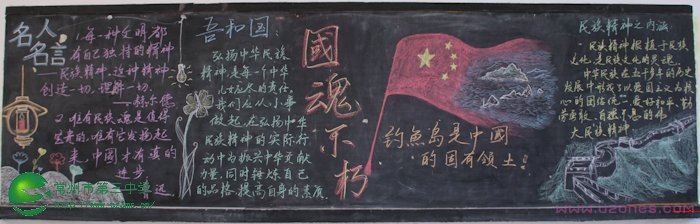 名人
名言
1.每一种文明都
有自己独特的精神
——民族精神,这种精神
创造一切,理解一切.
——赫尔德
2.唯有民族魂是值得
宝贵的,唯有它发扬起
来,中国才有真的
进步
吾和国:
弘扬中华民族
精神是每个中华
儿女应尽的责任,
我们应从小事
做起,在弘扬中华
民族精神的实际行
动中为振兴中华贡献
力量,同时锤炼自己
的品格,提高自身的素质.
國魂不朽
钓魚島是中國
的固有领土!
民族精神之内涵
民族精神根植于民族
文化,是民族文化的灵魂.
中华民族在五千多年的历
史发展中形成了以爱国主义为核
心的团结统一、爱好和平、勤
劳勇敢、自强不息的伟
大民族精神.
常州市第三中学
www.uzones.com